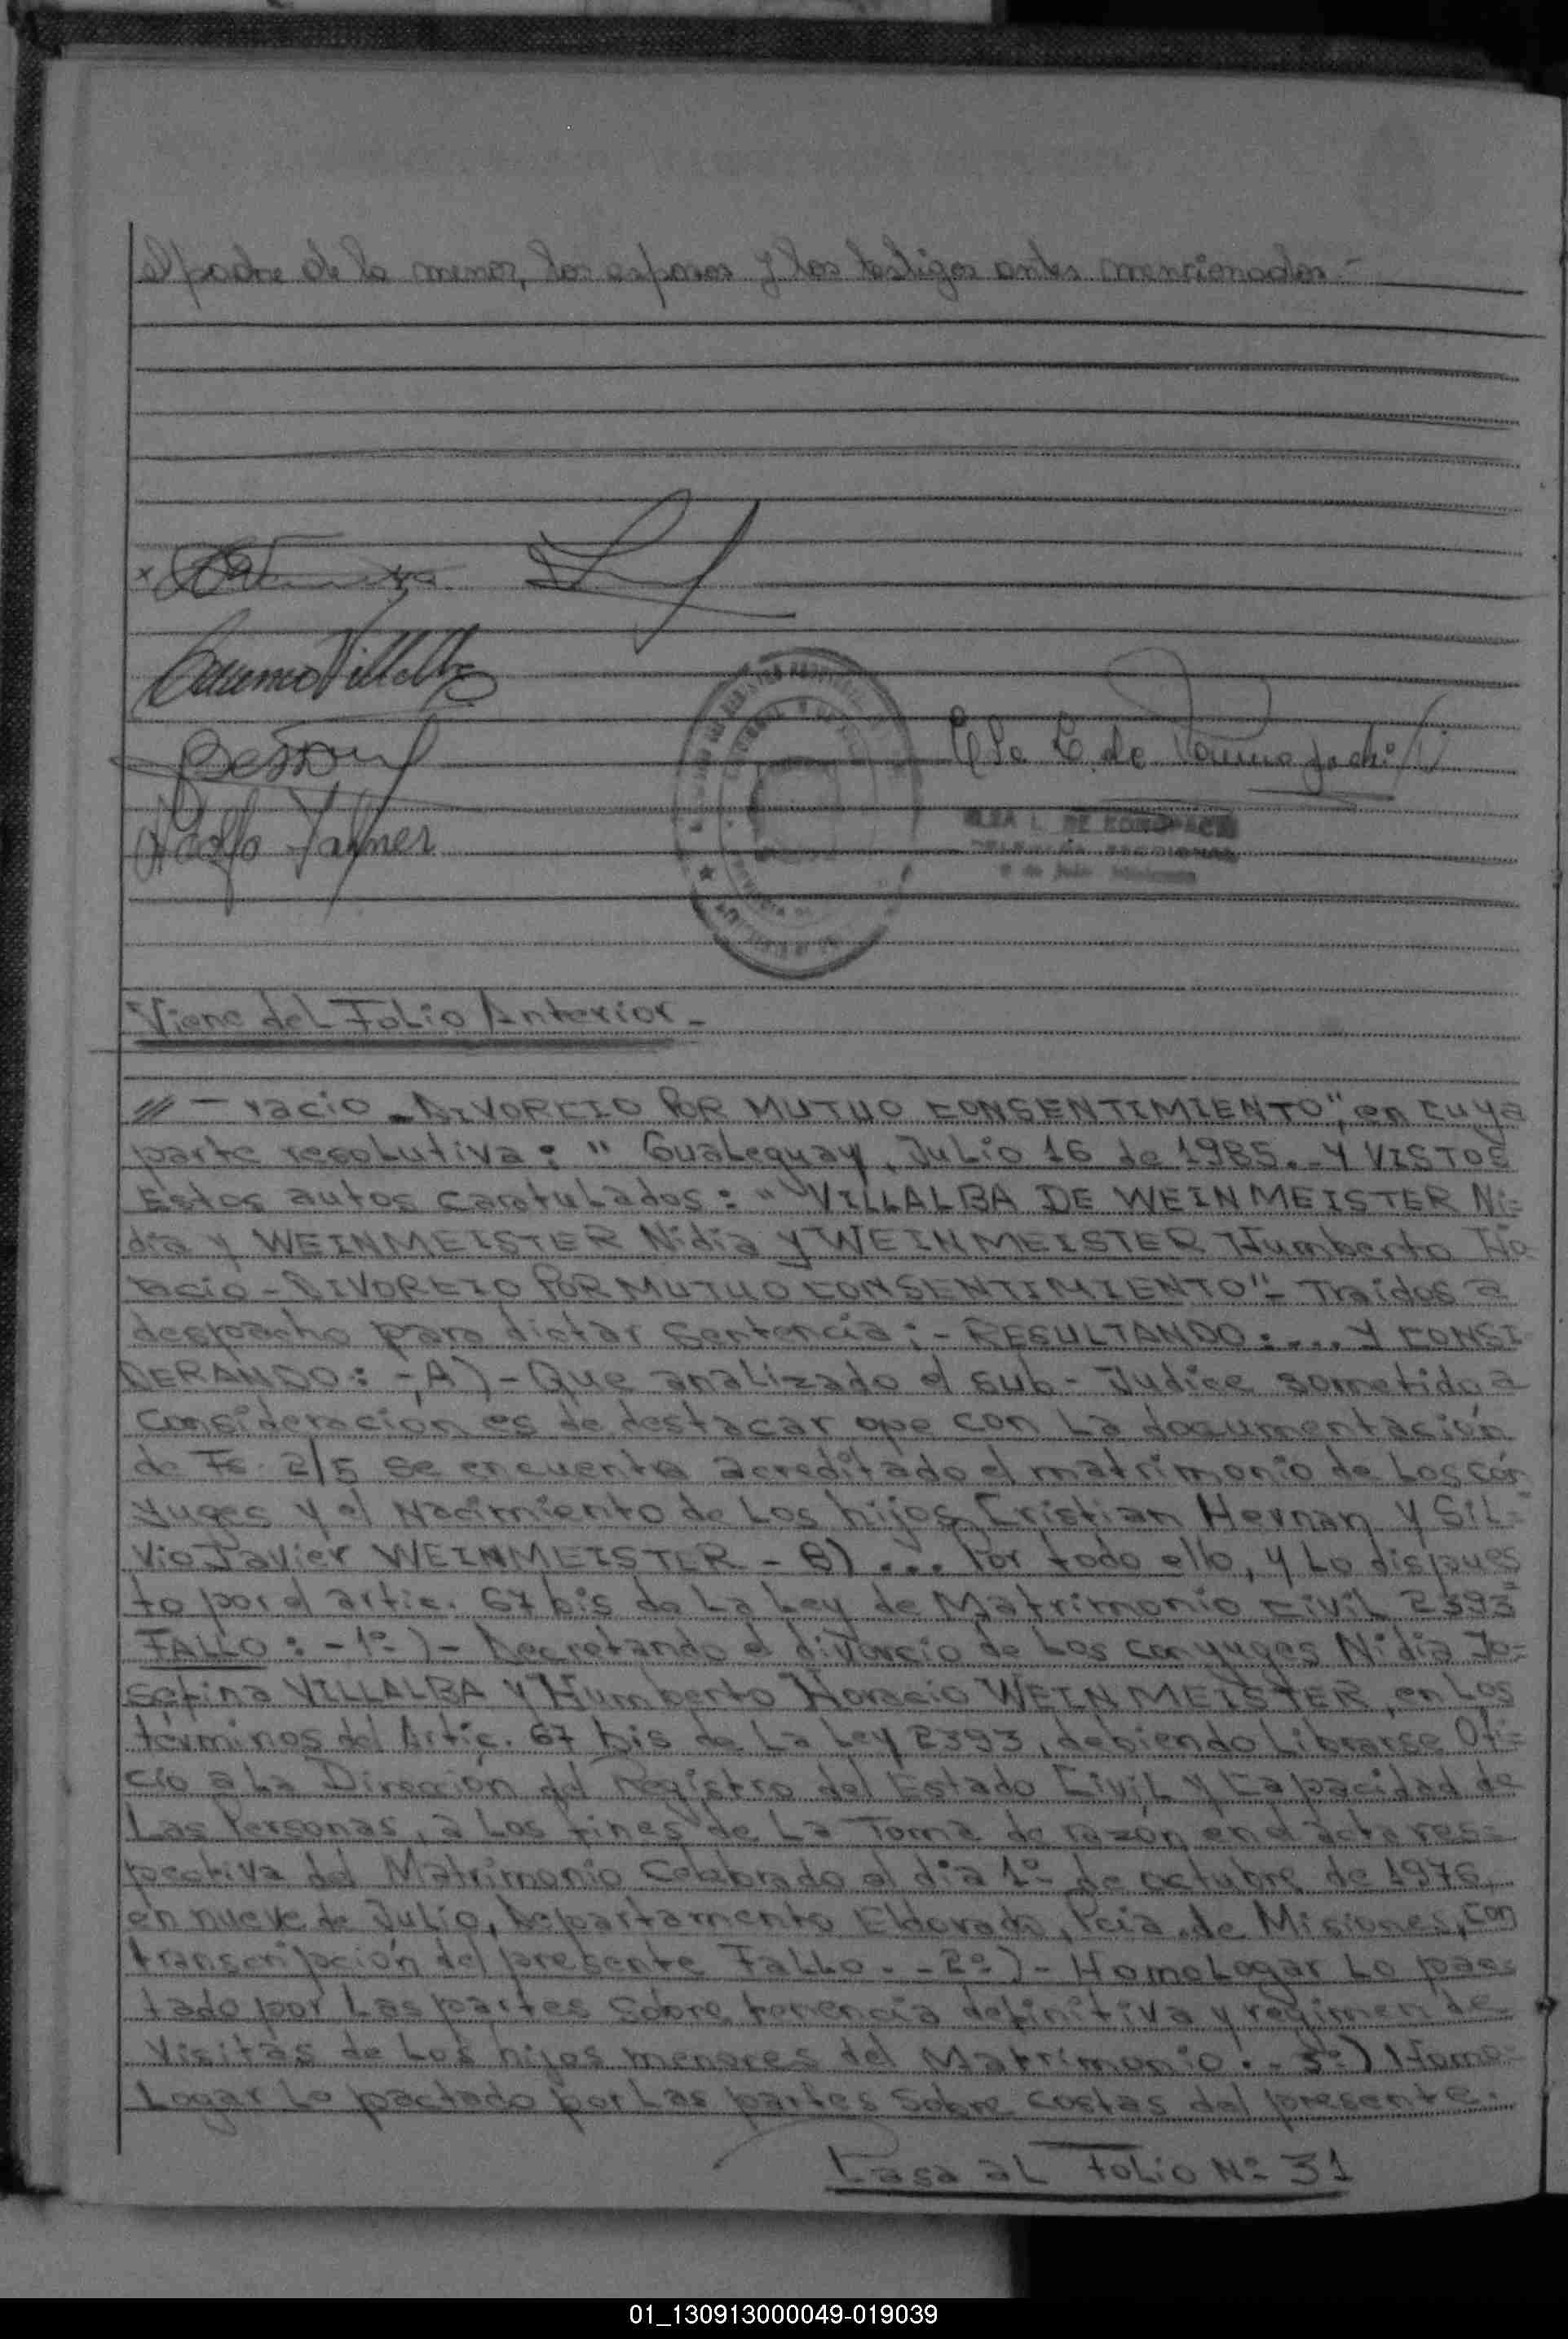 el padre de la menor, los esposos y los testigos antes mencionados.-
Adolfo
Elsa L. de
ELSA L. DE KONOPACKI
Viene del Folio Anterior-
//-racio-DIVORCIO POR MUTUO CONSENTIMIENTO", en cuya
parte resolutiva: "Gualeguay, Julio 16 de 1985.-Y VISTOS
Estos autos caratulados: "VILLALBA DE WEINMEISTER Ni=
dia y WEINMEISTER Nidia y WEINMEISTER Humberto Ho-
racio-DIVORCIO POR MUTUO CONSENTIMIENTO"- Traidos a
despacho para dictar Sentencia;-RESULTANDO:... y CONSI
DERANDO:-A)-Que analizado el sub-Judice sometido a
consideracion es de destacar qpe con La documentación
de Fs. 2/5 se encuentra acreditado el matrimonio de Los cón
yuges y el Nacimiento de Los hijos Cristian Hernan y Sil-
vio Javier WEINMEISTER-B)... Por todo ello, y Lo dispues
to por el artic. 67 bis de La Ley de Matrimonio Civil 2393
FALLO:-1º)-Decretando el divorcio de Los conyuges Nidia Jo=
sefina VILLALBA y Humberto Horacio WEINMEISTER, en Los
términos del Artic. 67 bis de La Ley 2393, debiendo Librarse Ofi=
cio a La Dirección del registro del Estado Civil y Capacidad de
Las Personas, a Los fines de La Toma de razón en el acta res=
pectiva del Matrimonio Celebrado el dia 1º de octubre de 1976
en nueve de Julio, Departamento Eldorado, Pcia. de Misiones, con
transcripción del presente Fallo.-2º)-Homologar Lo pac=
tado por Las partes Sobre tenencia definitiva y regimen de
Visitas de Los hijos menores del Matrimonio.-3º) Homo=
Logar Lo pactado por Las partes Sobre costas del presente.
Pasa al Folio Nº 31
01_130913000049-019039